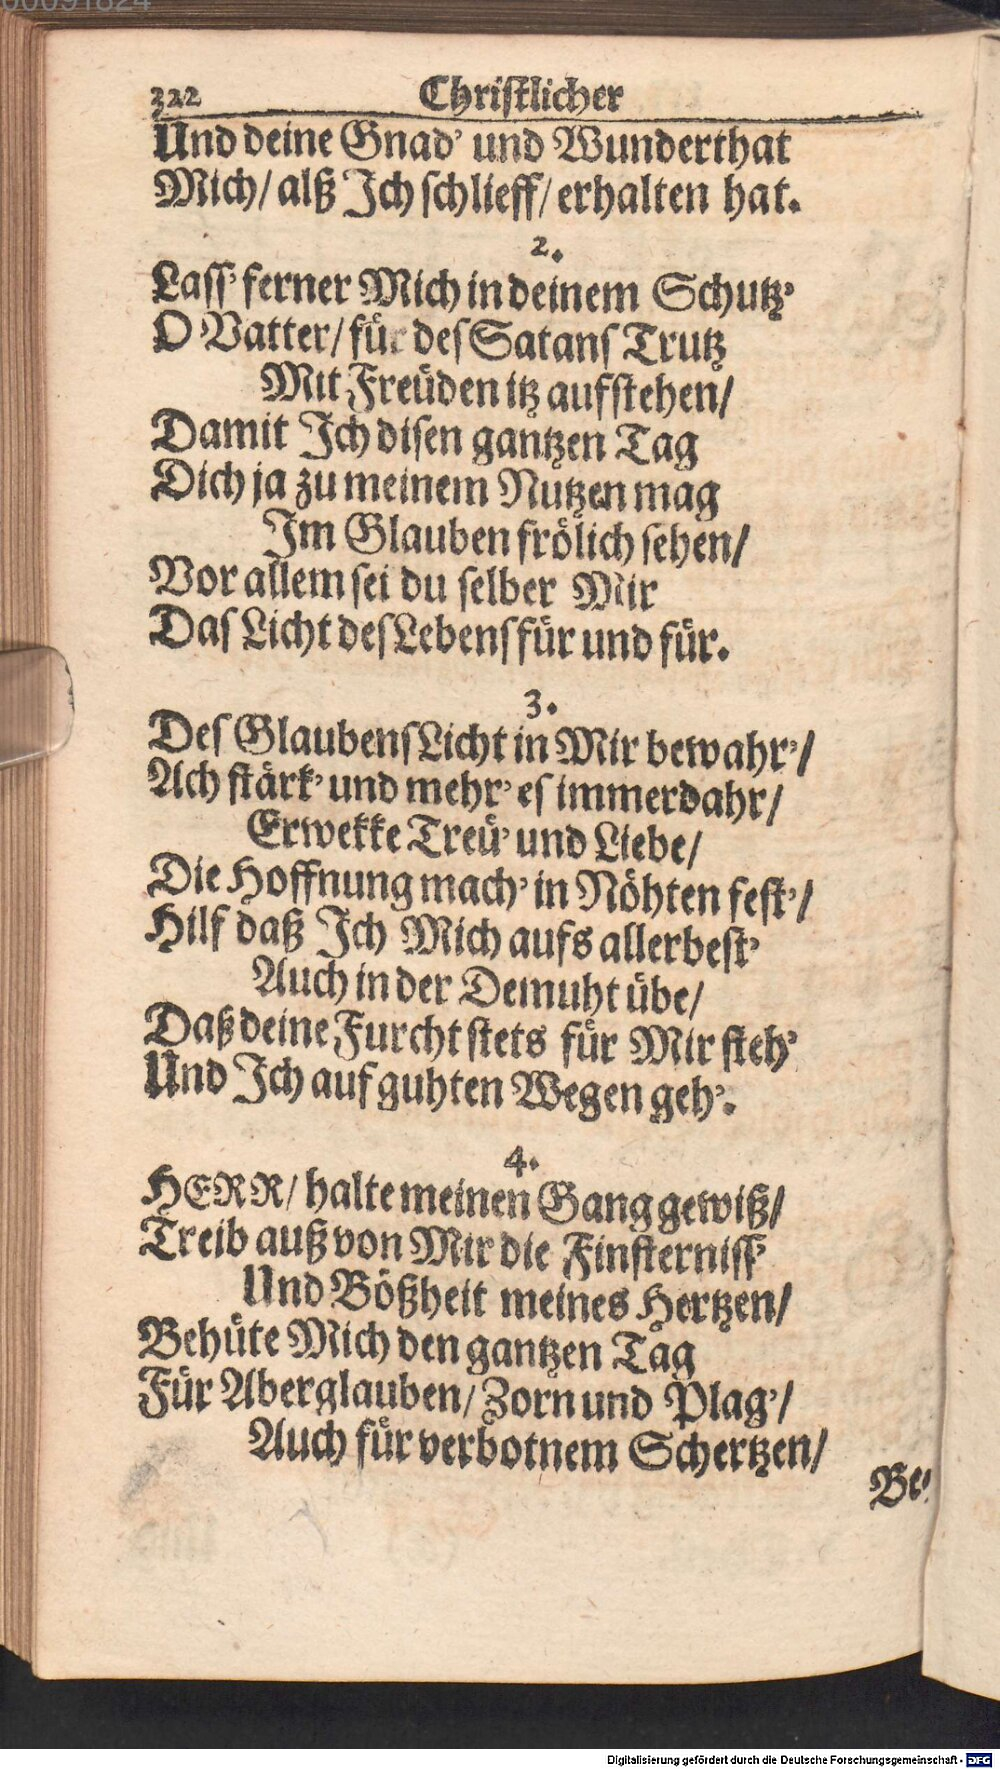 00091824
322 Chriſtlicher
Und deine Gnad' und Wunderthat
Mich/ alß Ich ſchlieff/ erhalten hat.
2.
Laſſ' ferner Mich in deinem Schutz'
O Vatter/ für deſ Satanſ Trutz
Mit Freüden itz aufſtehen/
Damit Ich diſen gantzen Tag
Dich ja zu meinem Nutzen mag
Im Glauben frölich ſehen/
Vor allem ſei du ſelber Mir
Daſ Licht deſ Lebenſ für und für.
3.
Deſ Glaubenſ Licht in Mir bewahr'/
Ach ſtärk' und mehr' eſ immerdahr/
Erwekke Treü' und Liebe/
Die Hoffnung mach' in Nöhten feſt'/
Hilf daß Ich Mich aufs allerbeſt'
Auch in der Demuht übe/
Daß deine Furcht ſtets für Mir ſteh'
Und Ich auf guhten Wegen geh'.
4.
HERR/ halte meinen Gang gewiß/
Treib auß von Mir die Finſterniſſ'
Und Bößheit meines Hertzen/
Behüte Mich den gantzen Tag
Für Aberglauben/ Zorn und Plag'/
Auch für verbotnem Schertzen/
Be⸗
Digitalisierung gefördert durch die Deutsche Forschungsgemeinschaft - DFG